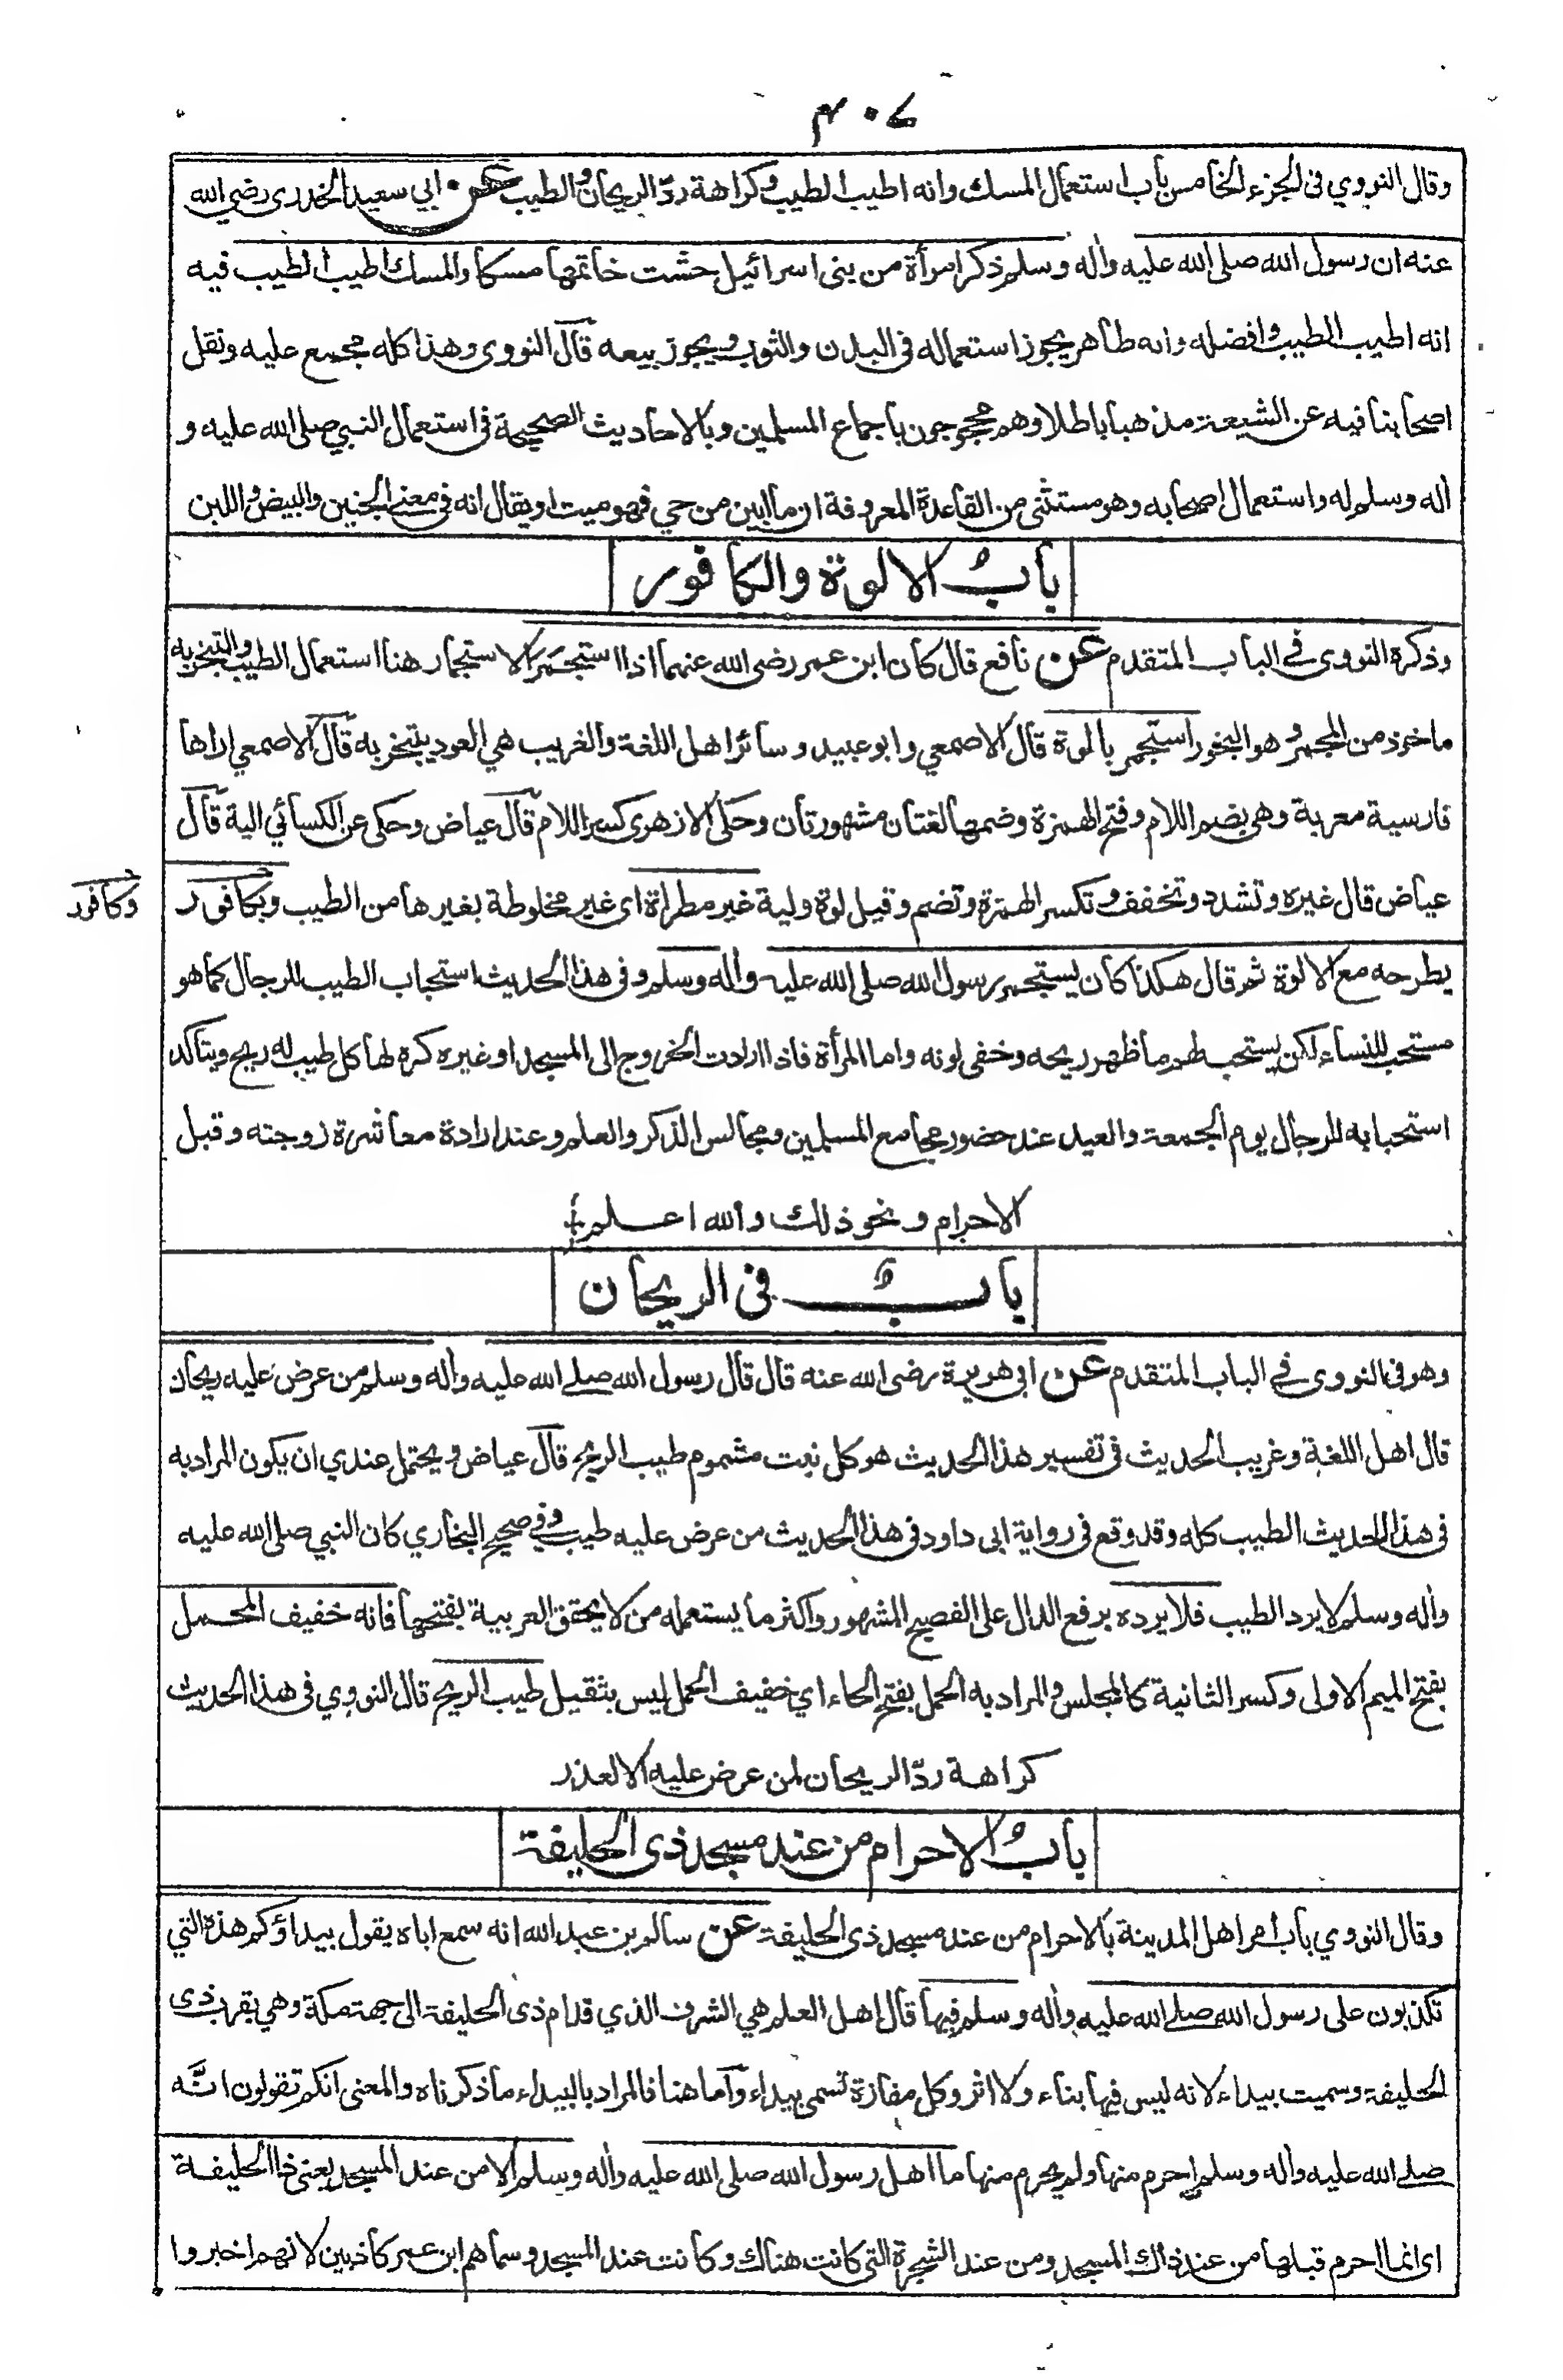 ٤٠٧
وقال النووي فى الجزء الخامس باب استعمال المسك وانه اطيب الطيب وكراهة ردّ الريحان والطيب عن ابي سعيد الخدرى رضي الله
عنه ان رسول الله صلى الله عليه واٰله وسلم ذكر امرأة من بنى اسرائيل حشت خاتمها مسكا والمسك اطيب الطيب فيه
انه اطيب الطيب وافضله وانه طاهر يجوز استعماله فى البدن والثوب ويجوز بيعه قال النووى وهذا كله مجمع عليه ونقل
اصحابنا فيه عن الشيعة مذهبا باطلا وهم محجوجون باجماع المسلمين وبالاحاديث الصحيحة فى استعمال النبي صلى الله عليه و
اٰله وسلم له واستعمال اصحابه وهو مستثنى من القاعدة المعروفة ان ما ابين من حي فهو ميت او يقال انه فى معنى الجنين والبيض واللبن
بابُ الالوة والكافور
وذكره النووى فى الباب المتقدم عن نافع قال كان ابن عمر رضى الله عنهما اذا استجمر الاستجمار هنا استعمال الطيب والتبخر به
ماخوذ من المجمر وهو البخور استجمر بالوة قال الاصمعي وابو عبيد وسائر اهل اللغة والغريب هي العود يتبخر به قال الاصمعي اراها
فارسية معربة وهى بضم اللام وفتح الهمزة وضمها لغتان مشهورتان وحكى الازهرى كسر اللام قال عياض وحكى عن الكسائي الية قال
عياض قال غيره وتشدد وتخفف وتكسر الهمزة وتضم وقيل لوة ولية غير مطراة اى غير مخلوطة بغيرها من الطيب وبكافور
وكافور
يطرحه مع الالوة ثم قال هكذا كان يستجمر رسول الله صلى الله عليه واٰله وسلم وفى هذا الحديث استحباب الطيب للرجال كما هو
مستحب للنساء لكن يستحب لهم ما ظهر ريحه وخفى لونه واما المرأة فاذا ارادت الخروج الى المسجد او غيره كره لها كل طيب له ريح ويتاكد
استحبابه للرجال يوم الجمعة والعيد عند حضور مجامع المسلمين ومجالس الذكر والعلم وعند ارادة معاشرة زوجته وقبل
الاحرام ونحو ذلك والله اعلم
بابٌ فى الريحان
وهو فى النووى فى الباب المتقدم عن ابى هريرة رضى الله عنه قال قال رسول الله صلى الله عليه واٰله وسلم من عرض عليه ريحان
قال اهل اللغة وغريب الحديث فى تفسير هذا الحديث هو كل نبت مشموم طيب الريح قال عياض ويحتمل عندي ان يكون المراد به
فى هذا الحديث الطيب كله وقد وقع فى رواية ابى داود فى هذا الحديث من عرض عليه طيب وفى صحيح البخاري كان النبي صلى الله عليه
واٰله وسلم لا يرد الطيب فلا يرده برفع الدال على الفصيح المشهور واكثر ما يستعمله من لا يحقق العربية بفتحها فانه خفيف المحمل
بفتح الميم الاولى وكسر الثانية كالمجلس والمراد به الحمل بفتح الحاء اي خفيف الحمل ليس بثقيل طيب الريح قال النووي فى هذا الحديث
كراهة ردّ الريحان لمن عرض عليه الا لعذر
بابُ الاحرام من عند مسجد ذى الحليفة
وقال النووي باب امر اهل المدينة بالاحرام من عند مسجد ذى الحليفة عن سالم بن عبد الله انه سمع اباه يقول بيداؤكم هذه التي
تكذبون على رسول الله صلى الله عليه واٰله وسلم فيها قال اهل العلم هي الشرف الذي قدام ذى الحليفة الى جهة مكة وهي بقرب ذى
الحليفة وسميت بيداء لانه ليس فيها بناء ولا اثر وكل مفازة تسمى بيداء واما هنا فالمراد بالبيداء ما ذكرناه والمعنى انكم تقولون انّه
صلى الله عليه واٰله وسلم احرم منها ولم يحرم منها ما اهل رسول الله صلى الله عليه واٰله وسلم الا من عند المسجد يعنى ذا الحليفة
اى انما احرم قبلها من عند ذاك المسجد ومن عند الشجرة التى كانت هناك وكانت عند المسجد وسماهم ابن عمر كاذبين لانهم اخبروا